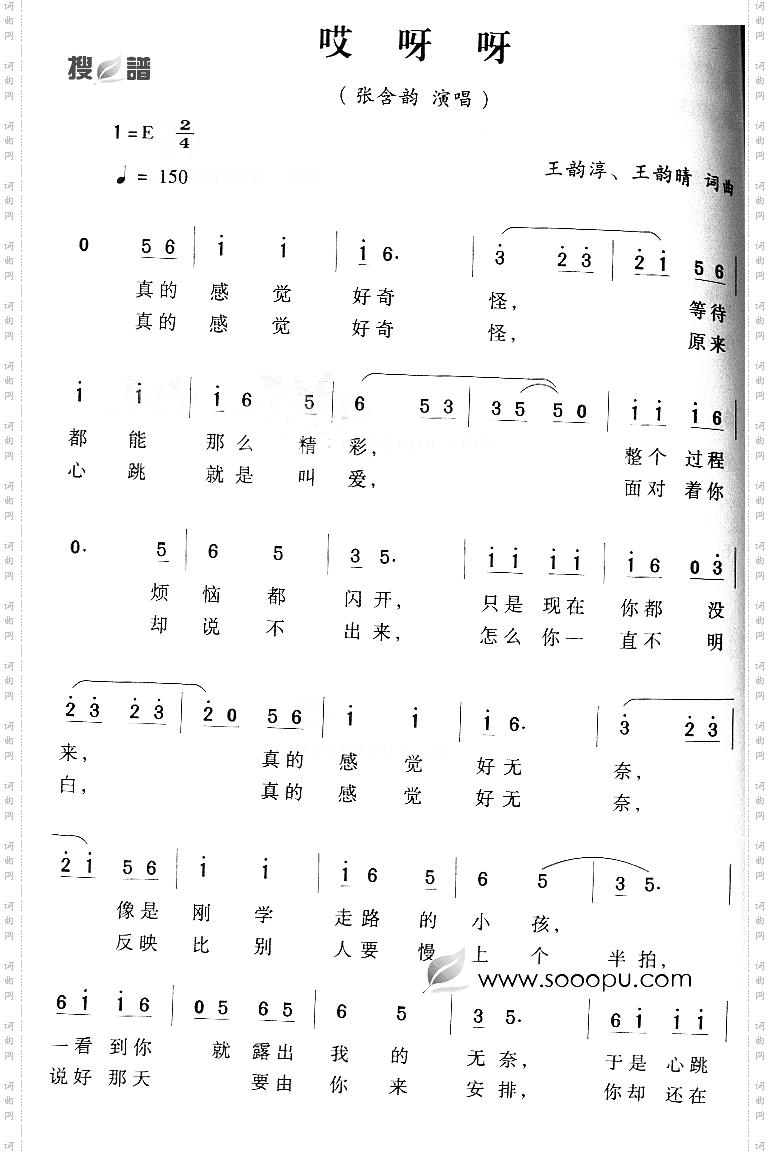 哎 呀 呀
搜 譜
（张含韵 演唱）
1=E 2/4
♩= 150
王韵淳、王韵晴 词曲
0 5 6 | i i | i 6. | 3 2 3 | 2 i 5 6 |
真的 感 觉 好奇 怪， 等待
真的 感 觉 好奇 怪， 原来
i i | i 6 5 | 6 5 3 | 3 5 5 0 | i i i 6 |
都 能 那么 精 彩， 整个 过程
心 跳 就是 叫 爱， 面对 着你
0. 5 | 6 5 | 3 5. | i i i i | i 6 0 3 |
烦 恼 都 闪开， 只是 现在 你都 没
却 说 不 出来， 怎么 你一 直不 明
2 3 2 3 | 2 0 5 6 | i i | i 6. | 3 2 3 |
来， 真的 感 觉 好无 奈，
白， 真的 感 觉 好无 奈，
2 i 5 6 | i i | i 6 5 | 6 5 | 3 5. |
像是 刚 学 走路 的 小 孩，
反映 比 别 人要 慢 上 个 半拍，
www.sooopu.com
6 i i 6 | 0 5 6 5 | 6 5 | 3 5. | 6 i i i |
一看 到你 就 露出 我 的 无奈， 于是 心跳
说好 那天 要由 你 来 安排， 你却 还在